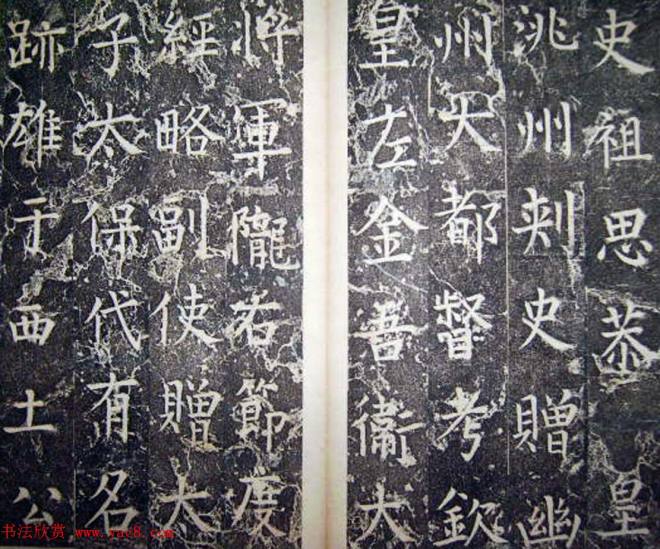 史祖思恭皇
洮州刺史贈幽
州大都督考欽
皇左金吾衛大
將軍隴右節度
經略副使贈太
子太保代有名
跡雄于西土公
书法欣赏 www.yac8.com